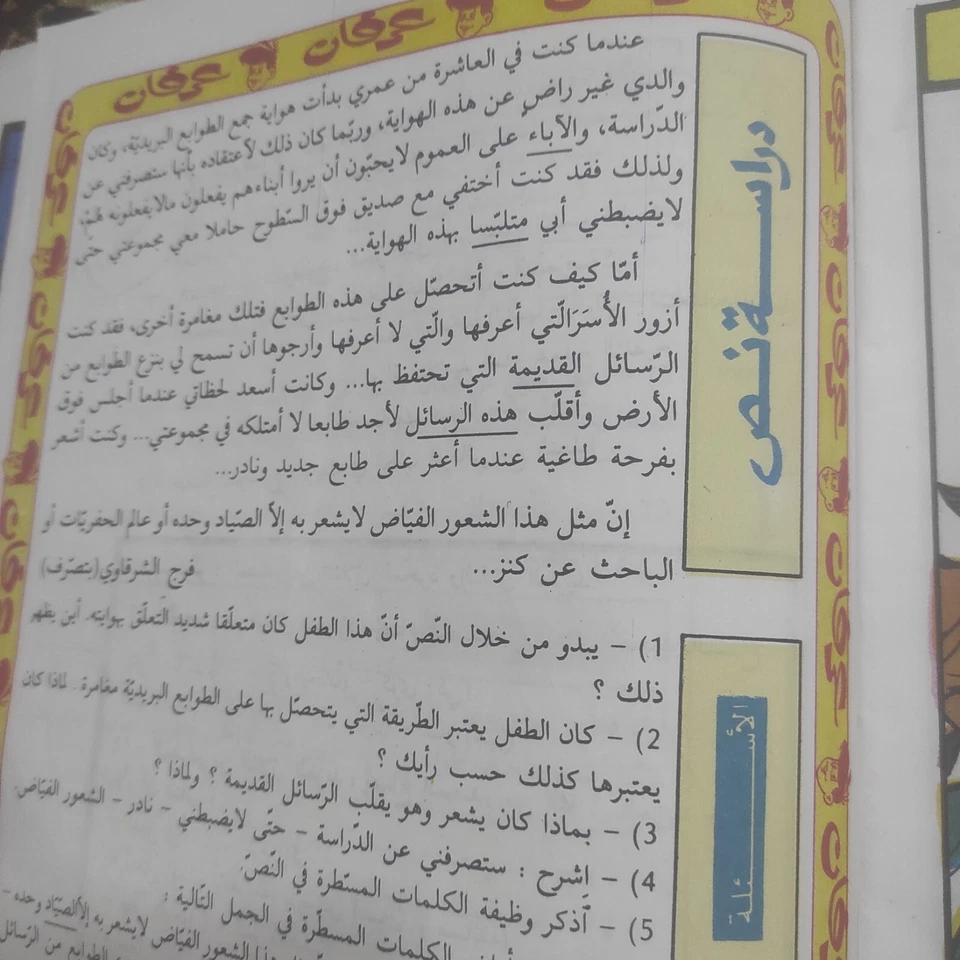 عرفان عرفان عرفان
دراسة نص
عندما كنت في العاشرة من عمري بدأت هواية جمع الطوابع البريديّة، وكان
والدي غير راض عن هذه الهواية، وربّما كان ذلك لاعتقاده بأنها ستصرفني عن
الدّراسة، والآباء على العموم لا يحبّون أن يروا أبناءهم يفعلون مالا يفعلونه هُمْ،
ولذلك فقد كنت أختفي مع صديق فوق السّطوح حاملا معي مجموعتي حتّى
لايضبطني أبي متلبّسا بهذه الهواية...
أمّا كيف كنت أتحصّل على هذه الطوابع فتلك مغامرة أخرى، فقد كنت
أزور الأُسَرَ الّتي أعرفها والّتي لا أعرفها وأرجوها أن تسمح لي بنزع الطّوابع من
الرّسائل القديمة التي تحتفظ بها... وكانت أسعد لحظاتي عندما أجلس فوق
الأرض وأقلّب هذه الرسائل لأجد طابعا لا أمتلكه في مجموعتي... وكنت أشعر
بفرحة طاغية عندما أعثر على طابع جديد ونادر...
إنّ مثل هذا الشعور الفيّاض لايشعر به إلاّ الصّياد وحده أو عالم الحفريّات أو
الباحث عن كنز...
فرج الشرقاوي (بتصّرف)
الأسئلة
1) – يبدو من خلال النّصّ أنّ هذا الطفل كان متعلّقا شديد التّعلّق بهوايته. أين يظهر
ذلك ؟
2) – كان الطفل يعتبر الطّريقة التي يتحصّل بها على الطوابع البريديّة مغامرة. لماذا كان
يعتبرها كذلك حسب رأيك ؟
3) – بماذا كان يشعر وهو يقلّب الرّسائل القديمة ؟ ولماذا ؟
4) – إشرح : ستصرفني عن الدّراسة – حتّى لايضبطني – نادر – الشعور الفيّاض.
5) – أذكر وظيفة الكلمات المسّطرة في النّصّ.
الكلمات المسطّرة في الجمل التّالية :
الشعور الفيّاض لايشعر به إلاّ الصّيّاد وحده –
الطوابع من الرّسائل